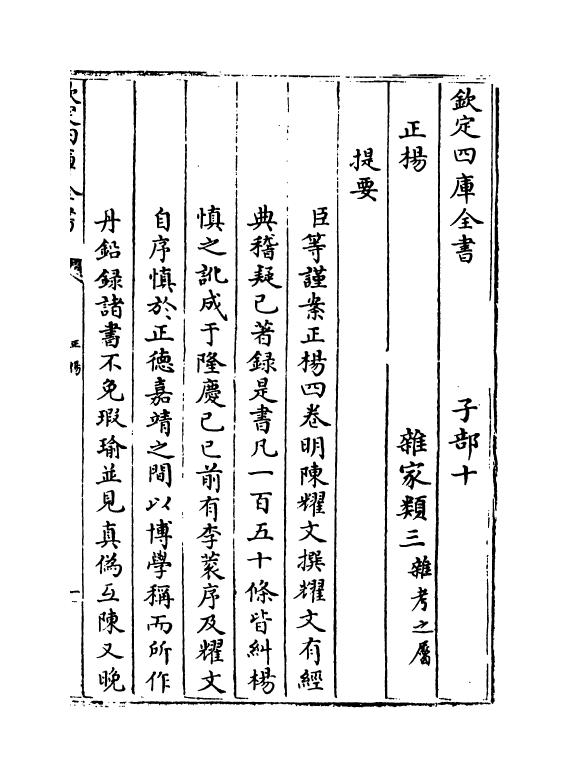 欽定四庫全書 子部十
正楊 雜家類三 雜考之屬
提要
臣等謹案正楊四卷明陳耀文撰耀文有經
典稽疑已著録是書凡一百五十條皆糾楊
慎之訛成于隆慶己巳前有李蓘序及耀文
自序慎於正德嘉靖之間以博學稱而所作
丹鉛録諸書不免瑕瑜並見真偽互陳又晚
欽定四庫全書
正楊